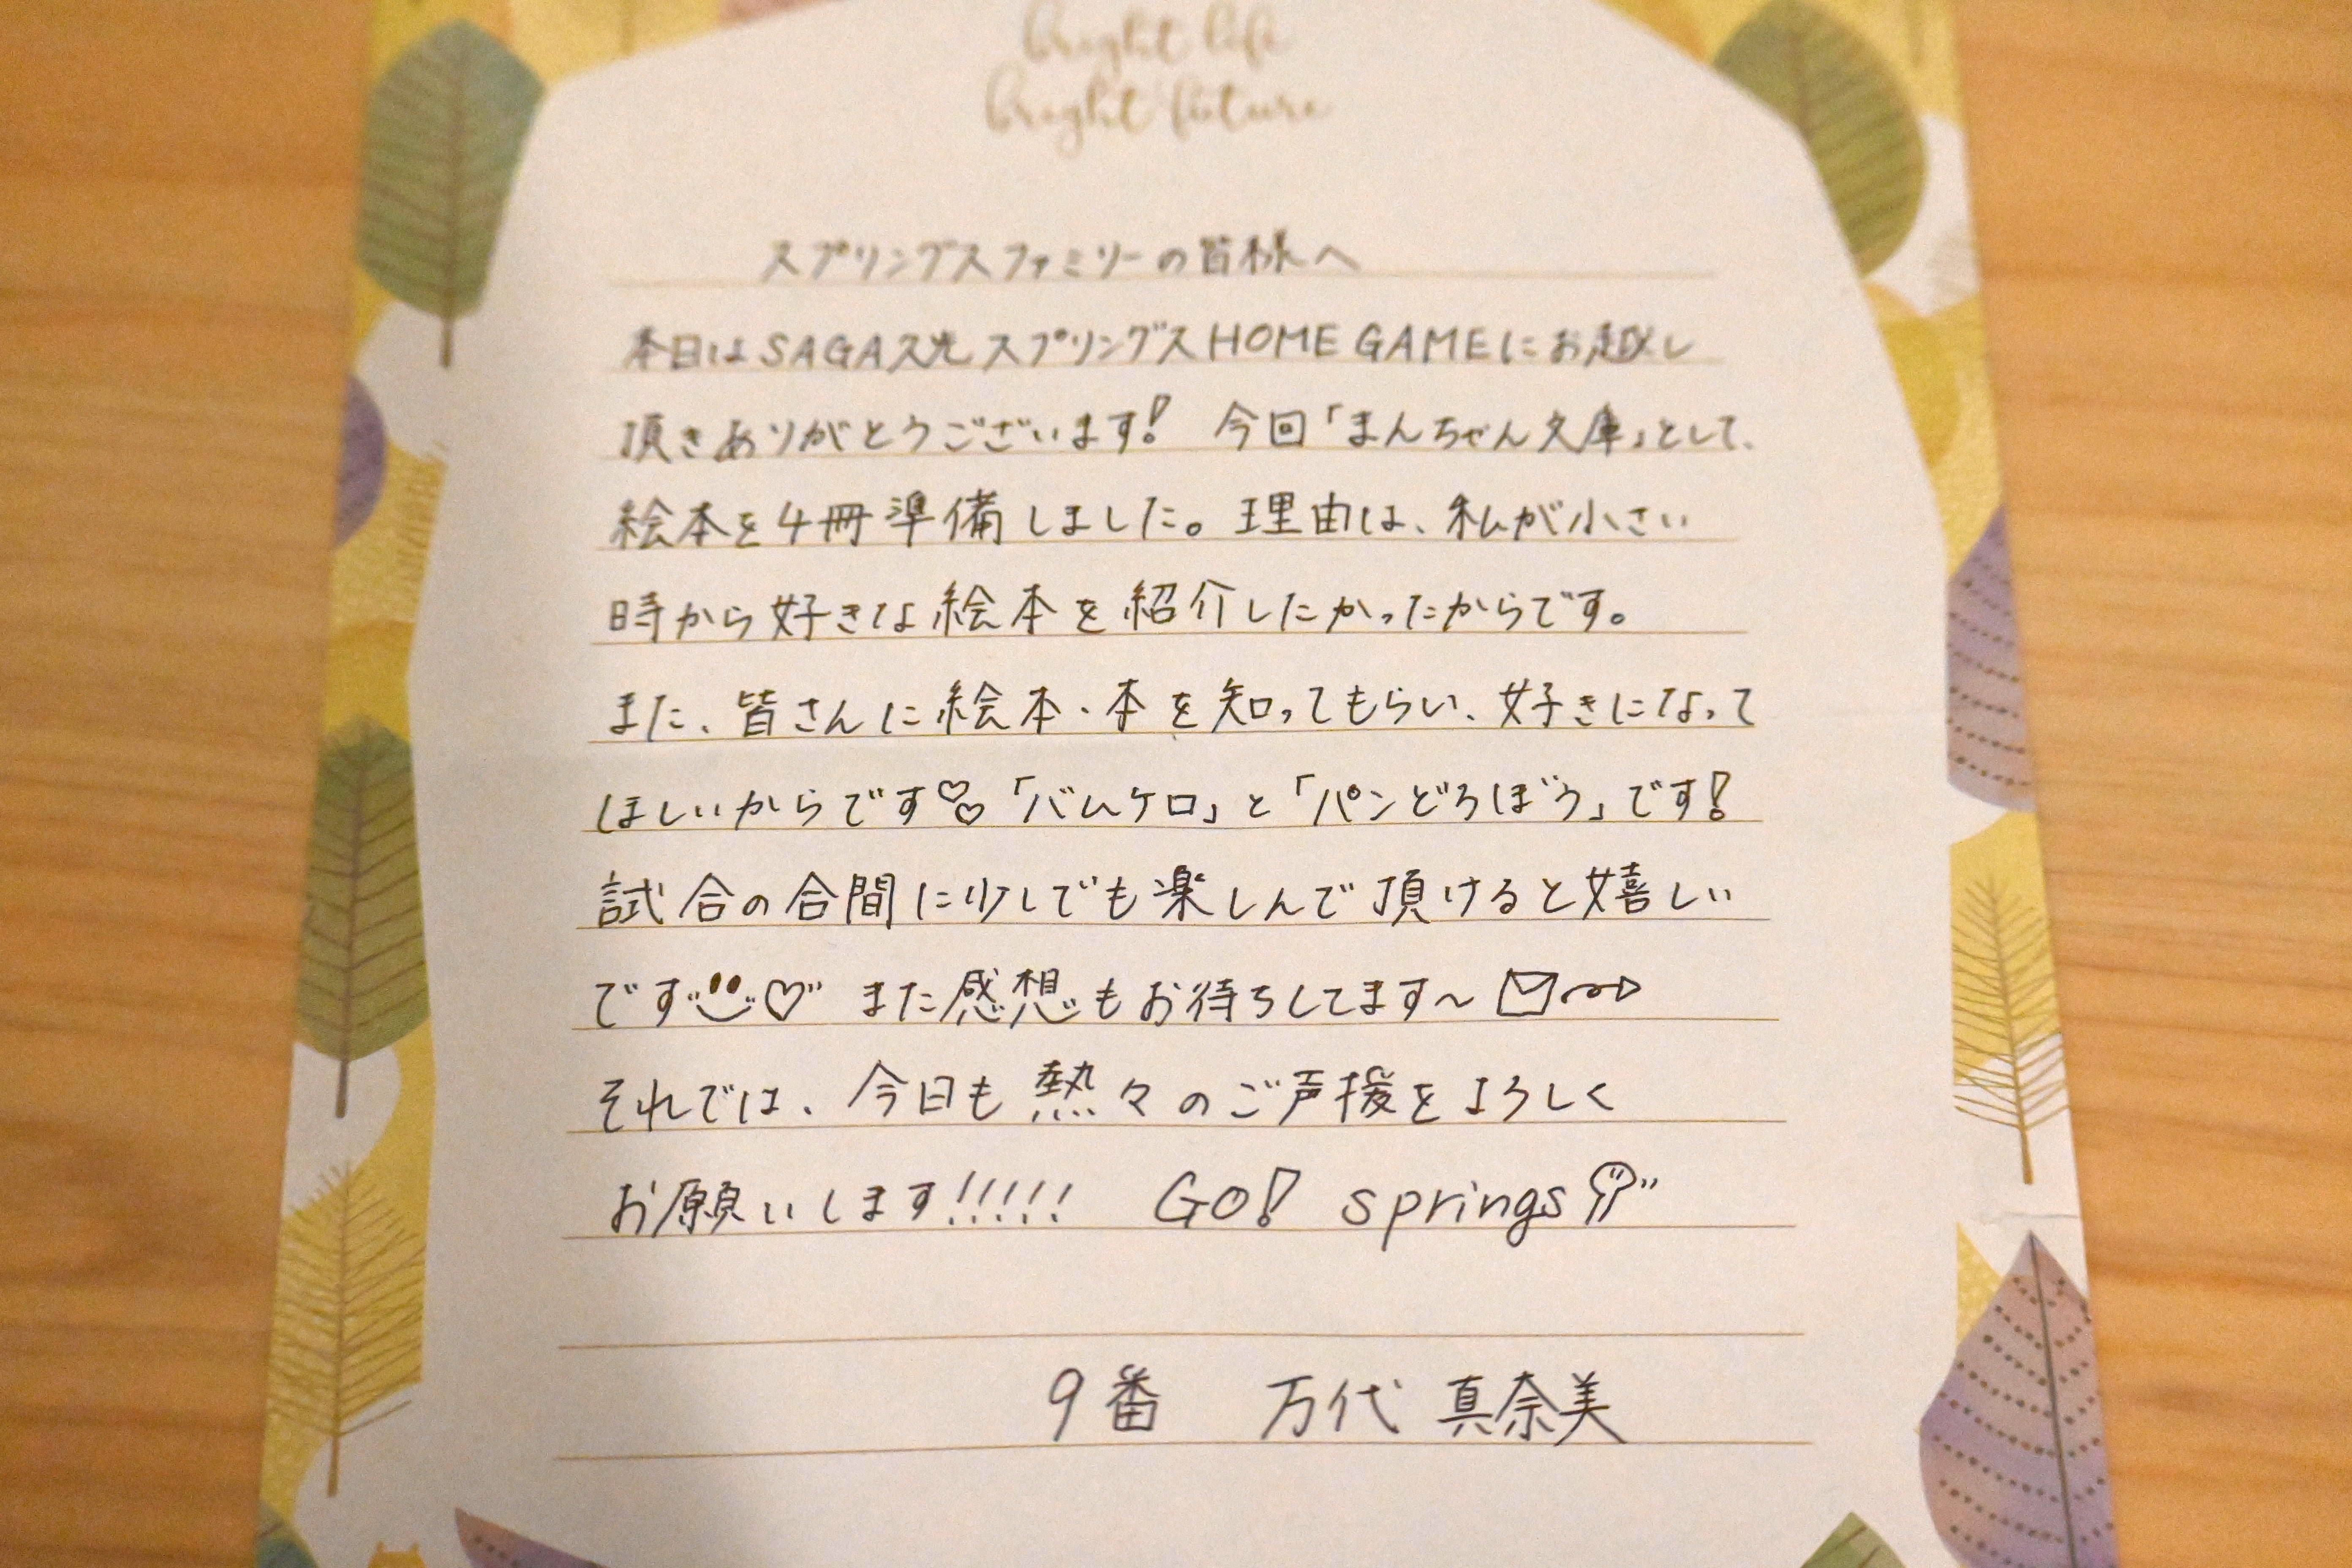 bright life
bright future
スプリングスファミリーの皆様へ
本日はSAGA久光スプリングスHOME GAMEにお越し
頂きありがとうございます! 今回「まんちゃん文庫」として、
絵本を4冊準備しました。理由は、私が小さい
時から好きな絵本を紹介したかったからです。
また、皆さんに絵本・本を知ってもらい、好きになって
ほしいからです♡♡「バムケロ」と「パンどろぼう」です!
試合の合間に少しでも楽しんで頂けると嬉しい
です♡ また感想もお待ちしてます〜
それでは、今日も熱々のご声援をよろしく
お願いします!!!!! GO! springs
9番 万代 真奈美